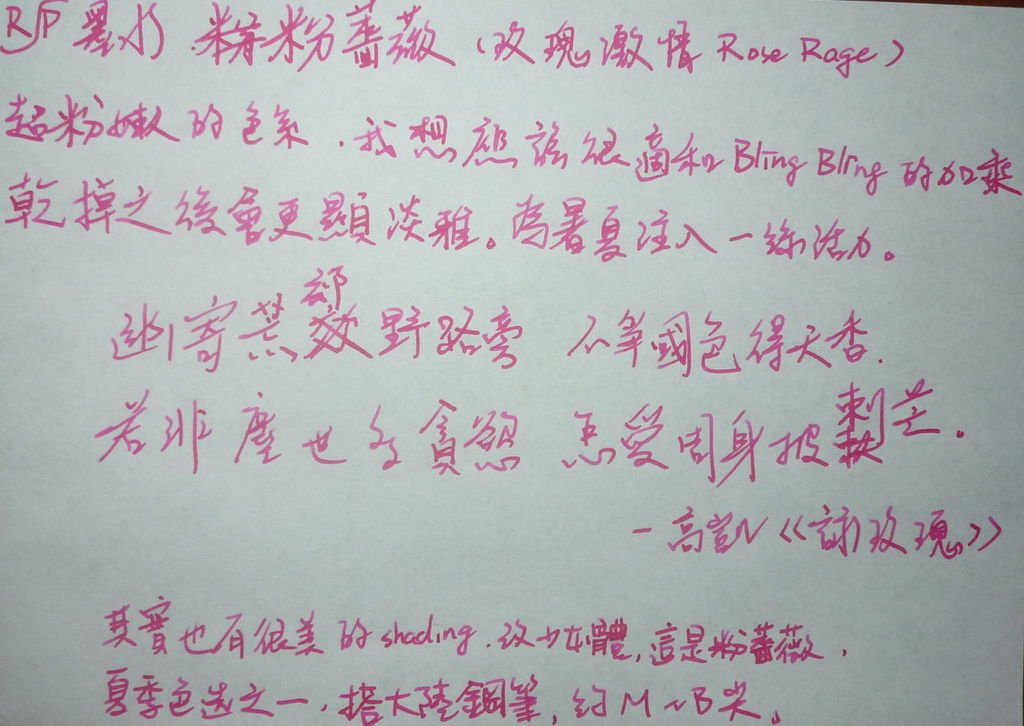 R/P 墨水. 粉粉薔薇 (玫瑰激情 Rose Rage)
超粉嫩的色系.我想應該很適和 Bling Bling 的加乘
乾掉之後會更顯淡雅。為暑夏注入一絲活力。
幽寄荒郊野路旁 不等國色得天香.
若非塵世多貪慾 怎受周身披刺芒.
—高凱《詠玫瑰》
其實也有很美的 shading. 這是粉薔薇,
夏季色選之一.搭大陸鋼筆,約 M~B 尖。